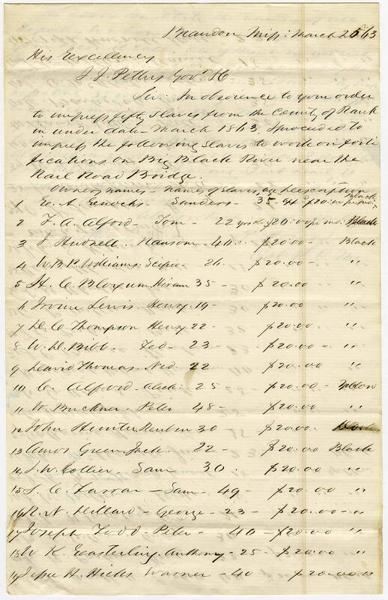 Brandon Miss: March 26 63
His Excellency
J. J. Pettus Gov. &c
Sir: In obedience to your order
to impress fifty slaves from the County of Rank
in under date March 1863, I proceeded to
impress the following slaves to work on forti
fications on Big Black River near the
Rail Road Bridge.
Owners names - names of slaves, age description
1 Sanders 35 - $20.00 per mo Black
2 F. A. Alford - Tom - 22 yrs old $20.00 p. mo. Black
3 Ransom - 40 - $20.00 - Black
4 W. B. P. Williams Scipio - 26 - $20.00 "
5 H. C. Bloxum Hiram 35 - $20.00 - "
6 Irvin Lewis Henry 19 - $20.00 - "
7 D. C. Thompson Henry 22 - $20.00 - "
8 W. D. Bibb - Ted - 23 - $20.00 - "
9 David Thomas Ned 22 $20.00 "
10 C. Alford 25 $20.00 - Yellow
11 W. Buckner - Peter 48 - $20.00 - "
12 John Hunter Reuben 30 $20.00
13 Amos Green Jack 22 - $20.00 Black
14 S. W. Collier - Sam 30 $20.00 "
15 S. C. Farrar - Sam - 49 $20.00 - "
16 R. N. Millard - George - 23 - $20.00 - "
17 Joseph Todd - Peter - 40 - $20.00 - "
18 W K Easterling Anthony - 25 - $20.00 - "
19 Jesse H. Hicks Warner - 40 $20.00 "